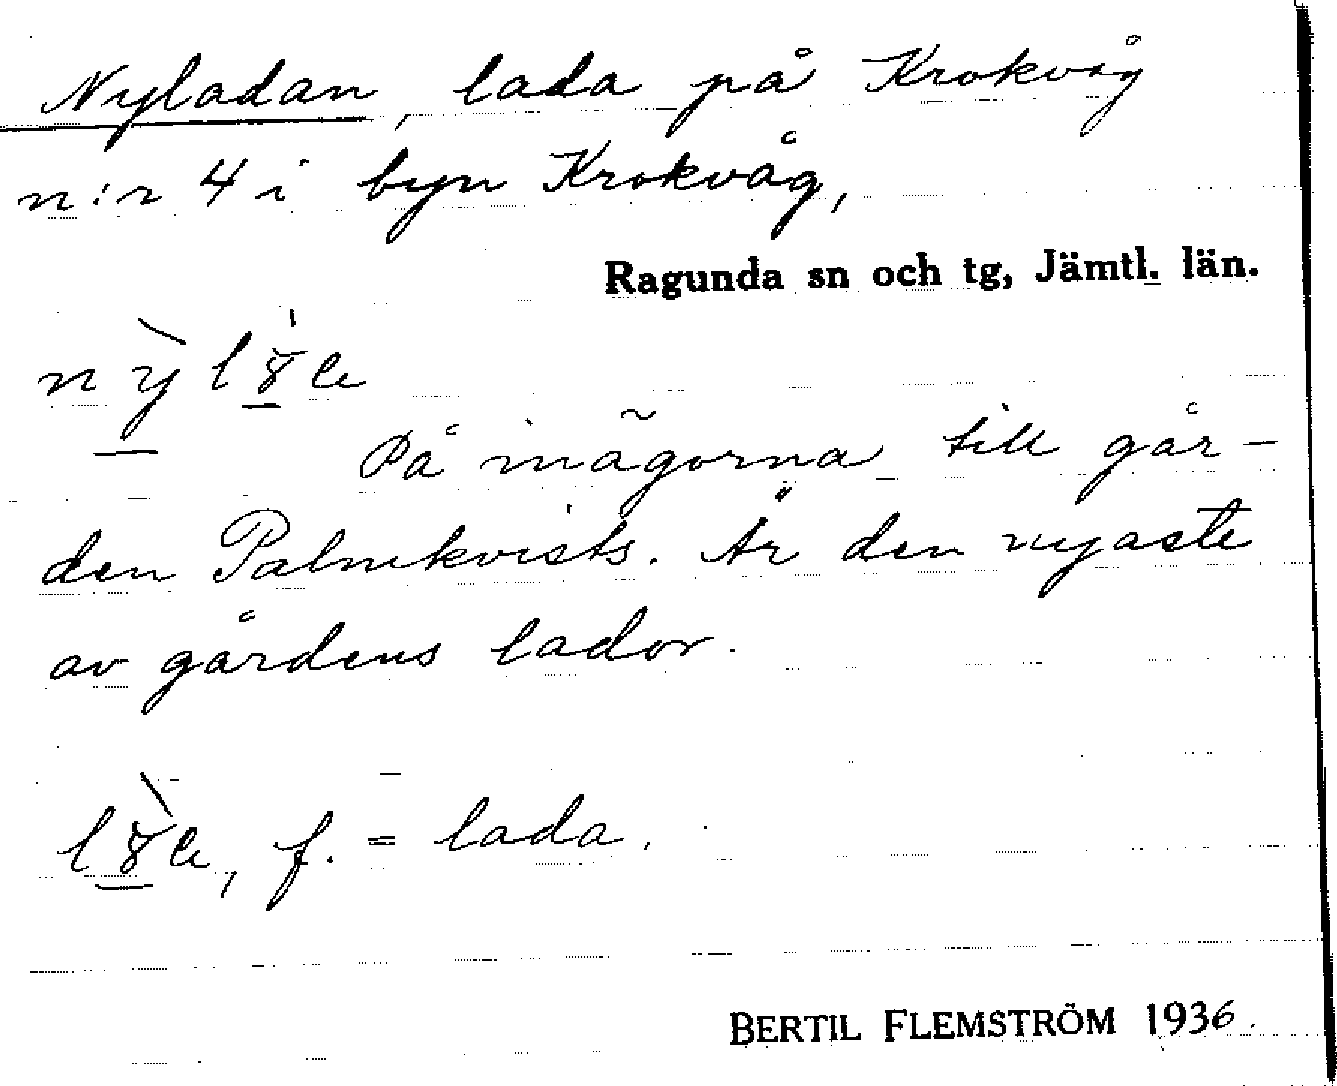 Nyladan, lada på Krokvåg
n:r 4 i byn Krokvåg,
Ragunda sn och tg, Jämtl. län.
På inägorna till går-
den Palmkvists. Är den nyaste
av gårdens lador.
f. = lada.
BERTIL FLEMSTRÖM 1936.